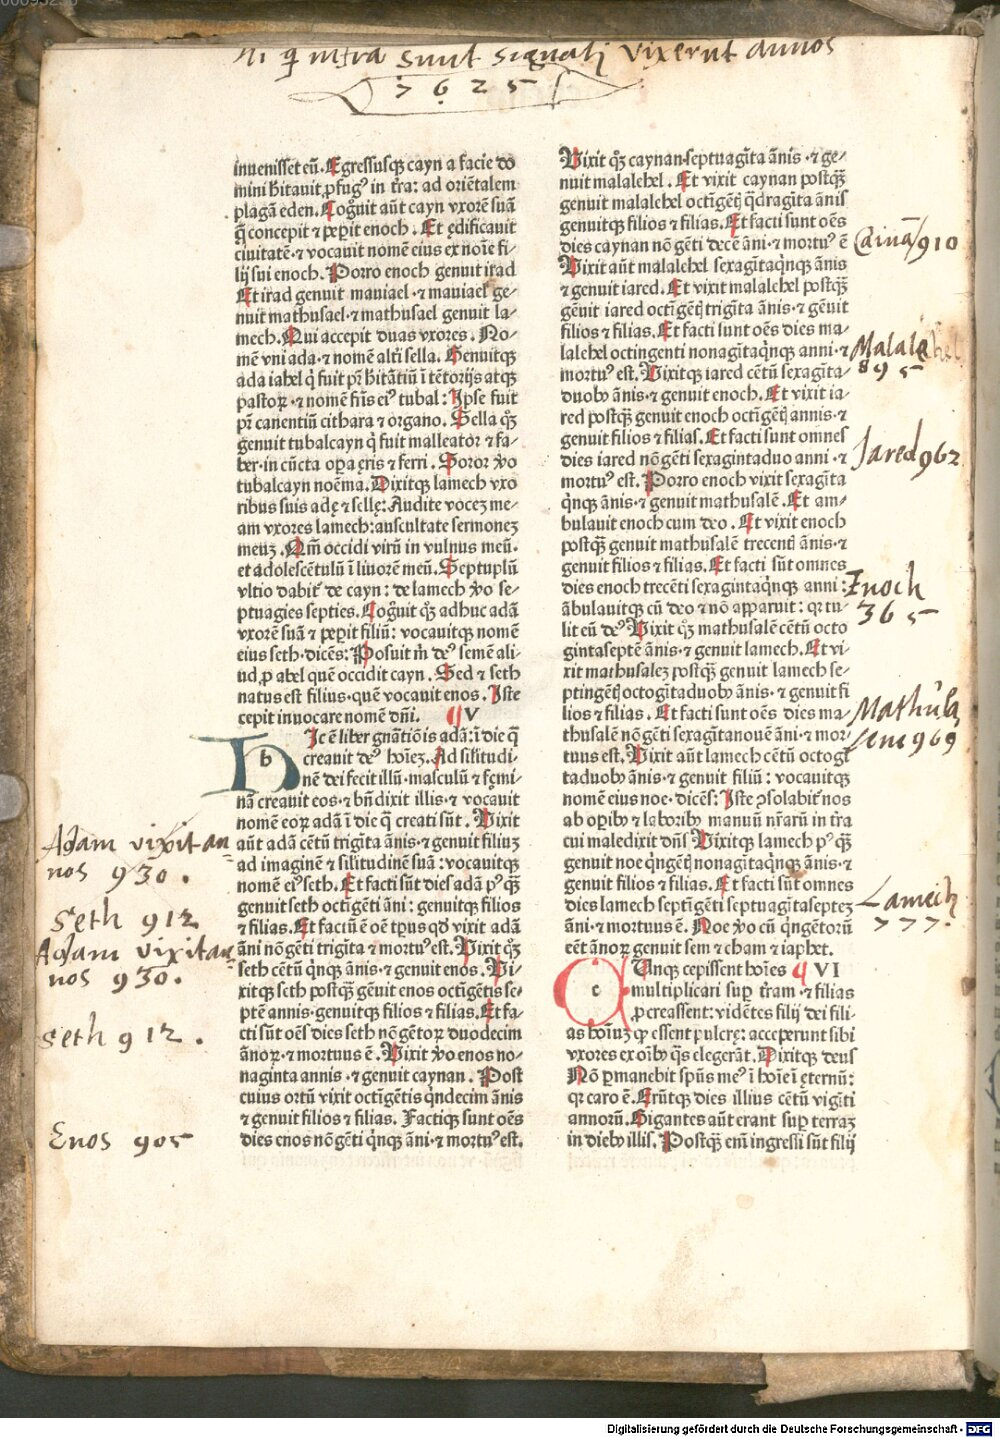 hi q̄ infra sunt signati vixerut annos
7625
inuenisset eū. Egressusqꝫ cayn a facie do
mini h̄itauit ꝓfugꝰ in t̄ra: ad oriētalem
plagā eden. Cogͦuit aūt cayn vxorē suā
q̄ concepit ⁊ peꝑit enoch. Et ędificauit
ciuitatē ⁊ vocauit nomē eius ex noīe fi⸗
lij sui enoch. Porro enoch genuit irad
Et irad genuit mauiael ⁊ mauiael ge⸗
nuit mathusael ⁊ mathusael genuit la⸗
mech. Qui accepit duas vxores. No⸗
mē vni ada ⁊ nomē alt̄i sella. Genuitqꝫ
ada iabel q̇ fuit pr̄ h̄itātiū ī tētorijs atqꝫ
pastoꝝ ⁊ nomē fr̄is eiꝰ tubal: Ipse fuit
pr̄ canentiū cithara ⁊ organo. Sella qꝫ̄
genuit tubalcayn q̇ fuit malleator ⁊ fa⸗
ber in cūcta oꝑa ęris ⁊ ferri. Soror ꝟo
tubalcayn noēma. Dixitqꝫ lamech vxo
ribus suis adę ⁊ sellę: Audite vocez me⸗
am vxores lamech: auscultate sermonez
meuz. Qm̄ occidi virū in vulnus meū
et adolescētulū ī liuorē meū. Septuplū
vltio dabit̄ de cayn: de lamech ꝟo se⸗
ptuagies septies. Cogͦuit qꝫ̄ adhuc adā
vxorē suā ⁊ peꝑit filiū: vocauitqꝫ nomē
eius seth dicēs: Posuit m̄ deꝰ semē ali⸗
ud ꝓ abel quē occidit cayn. Sed ⁊ seth
natus est filius quē vocauit enos. Iste
cepit inuocare nomē dn̄i. ¶ V
b
HIc ē liber gn̄atiōis adā: ī die q̄
creauit deꝰ hoīez. Ad sil̄itudi⸗
nē dei fecit illū masculū ⁊ fęmi⸗
nā creauit eos ⁊ bn̄dixit illis ⁊ vocauit
nomē eoꝝ adā ī die q̄ creati sūt. Vixit
aūt adā cētū trigīta ānis ⁊ genuit filiuz
ad imaginē ⁊ sil̄itudinē suā: vocauitqꝫ
nomē eiꝰ seth. Et facti sūt dies adā pꝰ qꝫ̄
genuit seth octīgēti āni: genuitqꝫ filios
⁊ filias. Et factū ē oē tꝑus qd̄ vixit adā
āni nōgēti trigīta ⁊ mortuꝰ est. Vixit qꝫ̄
seth cētū q̄nqꝫ ānis ⁊ genuit enos. Vi⸗
xitqꝫ seth postqꝫ̄ gēuit enos octīgētis se⸗
ptē annis genuitqꝫ filios ⁊ filias. Et fa⸗
cti sūt oēs dies seth nōgētoꝝ duodecim
ānoꝝ ⁊ mortuus ē. Vixit ꝟo enos no⸗
naginta annis ⁊ genuit caynan. Post
cuius ortū vixit octīgētis q̄ndecim ānis
⁊ genuit filios ⁊ filias. Factiqꝫ sunt oēs
dies enos nōgēti q̄nqꝫ āni ⁊ mortuꝰ est.
Adam vixit an
nos 930.
Seth 912
Adam vixit an
nos 930.
Seth 912.
Enos 905
Vixit qꝫ̄ caynan septuagīta ānis ⁊ ge⸗
nuit malalehel. Et vixit caynan postqꝫ̄
genuit malalehel octīgētꝭ q̄dragīta ānis
genuitqꝫ filios ⁊ filias. Et facti sunt oēs
dies caynan nōgēti decē āni ⁊ mortuꝰ ē
Vixit aūt malalehel sexagītaq̄nqꝫ ānis
⁊ genuit iared. Et vixit malalehel postqꝫ̄
gēuit iared octīgētꝭ trigīta ānis ⁊ gēuit
filios ⁊ filias. Et facti sunt oēs dies ma⸗
lalehel octingenti nonagītaq̄nqꝫ anni ⁊
mortuꝰ est. Vixitqꝫ iared cētū sexagīta⸗
duobꝰ ānis ⁊ genuit enoch. Et vixit ia⸗
red postqꝫ̄ genuit enoch octīgētꝭ annis ⁊
genuit filios ⁊ filias. Et facti sunt omnes
dies iared nōgēti sexagintaduo anni ⁊
mortuꝰ est. Porro enoch vixit sexagīta
q̄nqꝫ ānis ⁊ genuit mathusalē. Et am⸗
bulauit enoch cum deo. Et vixit enoch
postqꝫ̄ genuit mathusalē trecentꝭ ānis ⁊
genuit filios ⁊ filias. Et facti sūt omnes
dies enoch trecēti sexagintaq̄nqꝫ anni:
ābulauitqꝫ cū deo ⁊ nō apparuit: qꝛ tu⸗
lit eū deꝰ. Vixit qꝫ̄ mathusalē cētū octo
gintaseptē ānis ⁊ genuit lamech. Et vi⸗
xit mathusalez postqꝫ̄ genuit lamech se⸗
ptingētꝭ octogītaduobꝰ ānis ⁊ genuit fi
lios ⁊ filias. Et facti sunt oēs dies ma⸗
thusalē nōgēti sexagītanouē āni ⁊ mor⸗
tuus est. Vixit aūt lamech cētū octogī
taduobꝰ ānis ⁊ genuit filiū: vocauitqꝫ
nomē eius noe dicēs: Iste ꝯsolabit̄ nos
ab oꝑibꝰ ⁊ laboribꝰ manuū nr̄arū in t̄ra
cui maledixit dn̄s. Vixitqꝫ lamech pꝰ qꝫ̄
genuit noe q̄ngētꝭ nonagītaq̄nqꝫ ānis ⁊
genuit filios ⁊ filias. Et facti sūt omnes
dies lamech septīgēti septuagītaseptez
āni ⁊ mortuus ē. Noe ꝟo cū q̄ngētorū
eēt ānoꝝ genuit sem ⁊ cham ⁊ iaphet.
c
CUnqꝫ cepissent hoīes ¶ VI
multiplicari suꝑ t̄ram ⁊ filias
ꝓcreassent: vidētes filij dei fili⸗
as hoīuz ꝙ essent pulcrę: acceperunt sibi
vxores ex oībꝰ q̄s elegerāt. Dixitqꝫ deus
Nō ꝑmanebit spūs meꝰ ī hoīe ī ęternū:
qꝛ caro ē. Erūtqꝫ dies illius cētū vigīti
annorū. Gigantes aūt erant suꝑ terraz
in diebꝰ illis. Postqꝫ̄ enī ingressi sūt filij
Cainā 910
Malalehel
895
Iared 962
Enoch
365
Mathusa
lem 969
Lamech
777.
Digitalisierung gefördert durch die Deutsche Forschungsgemeinschaft - DFG